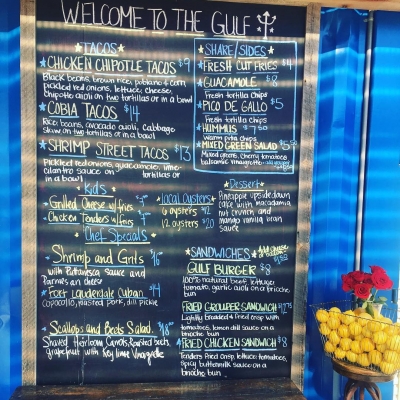 WELCOME TO THE GULF
TACOS
CHICKEN CHIPOTLE TACOS $9
Black beans, brown rice, poblano & corn,
pickled red onions, lettuce, cheese,
chipotle aioli on two tortillas or in a bowl
COBIA TACOS $14
Rice, beans, avocado aioli, cabbage
slaw on two tortillas or in a bowl
SHRIMP STREET TACOS $13
Pickled red onions, guacamole, lime-
cilantro sauce on tortillas or
in a bowl
Kids
Grilled Cheese w/fries
Chicken Tenders w/fries
Chef Specials
Shrimp and Grits $16
with Puttanesca sauce and
Parmesan cheese
Fort Lauderdale Cuban
roasted pork, dill pickle
Scallops and Beets Salad
Shaved Heirloom Carrots, Roasted beets,
grapefruit with Key lime Vinaigrette
SHARE/SIDES
FRESH CUT FRIES $4
GUACAMOLE $8
Fresh tortilla Chips
PICO DE GALLO $5
Fresh tortilla Chips
HUMMUS $7.50
Warm pita chips
MIXED GREEN SALAD
Mixed greens, cherry tomatoes
balsamic vinaigrette
local oysters
6 oysters $12
12 oysters $20
Dessert
Pineapple upside down
cake with macadamia
nut crunch, and
mango vanilla bean
sauce
SANDWICHES
GULF BURGER $8
100% natural beef, lettuce,
tomato, garlic aioli on a brioche
bun
FRIED GROUPER SANDWICH $12.75
Lightly breaded & Fried crisp with
tomatoes, lemon dill sauce on a
brioche bun
FRIED CHICKEN SANDWICH $8
Tenders fried crisp, lettuce, tomatoes,
spicy buttermilk sauce on a
brioche bun